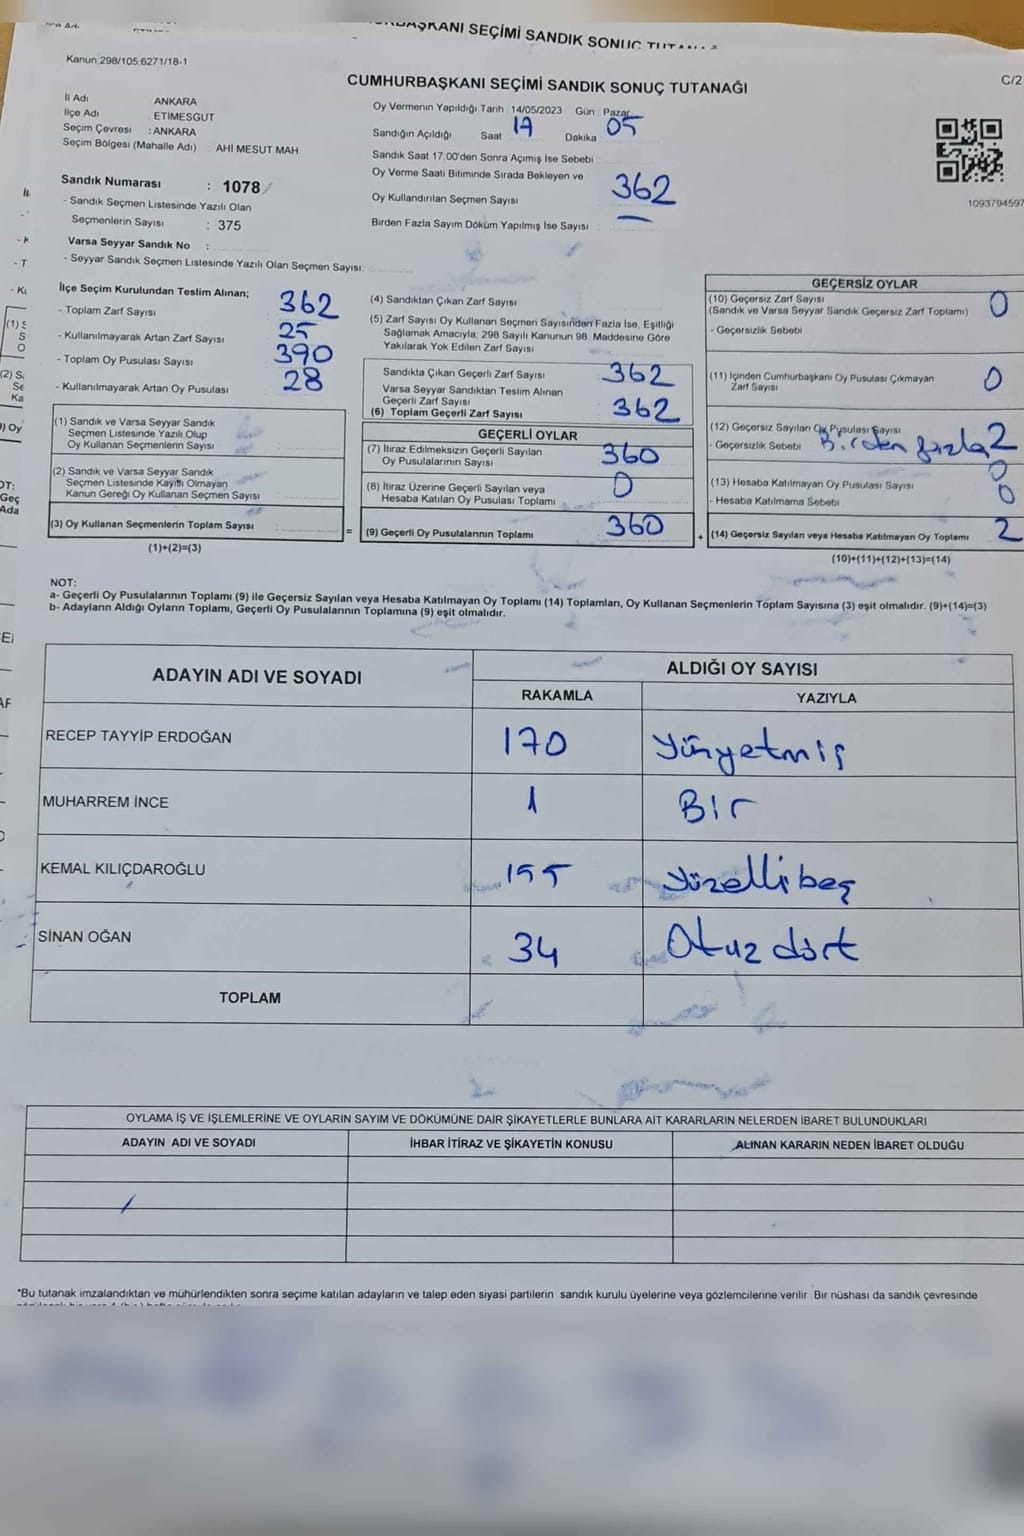 CUMHURBAŞKANI SEÇİMİ SANDIK SONUÇ TUTANAĞI
Kanun:298/105,6271/18-1
C/2
İl Adı ANKARA
İlçe Adı : ETİMESGUT
Seçim Çevresi : ANKARA
Seçim Bölgesi (Mahalle Adı) AHİ MESUT MAH.
Sandık Numarası : 1078
- Sandık Seçmen Listesinde Yazılı Olan
Seçmenlerin Sayısı : 375
Varsa Seyyar Sandık No :
- Seyyar Sandık Seçmen Listesinde Yazılı Olan Seçmen Sayısı:
Oy Vermenin Yapıldığı Tarih : 14/05/2023 Gün : Pazar
Sandığın Açıldığı Saat 17 Dakika 05
Sandık Saat 17:00'den Sonra Açımış İse Sebebi :
Oy Verme Saati Bitiminde Sırada Bekleyen ve
Oy Kullandırılan Seçmen Sayısı 362
Birden Fazla Sayım Döküm Yapılmış İse Sayısı : —
1093794597
İlçe Seçim Kurulundan Teslim Alınan;
- Toplam Zarf Sayısı 362
- Kullanılmayarak Artan Zarf Sayısı 25
- Toplam Oy Pusulası Sayısı 390
- Kullanılmayarak Artan Oy Pusulası 28
(1) Sandık ve Varsa Seyyar Sandık
Seçmen Listesinde Yazılı Olup
Oy Kullanan Seçmenlerin Sayısı
(2) Sandık ve Varsa Seyyar Sandık
Seçmen Listesinde Kayıtlı Olmayan
Kanun Gereği Oy Kullanan Seçmen Sayısı
(3) Oy Kullanan Seçmenlerin Toplam Sayısı :
(1)+(2)=(3)
(4) Sandıktan Çıkan Zarf Sayısı
(5) Zarf Sayısı Oy Kullanan Seçmen Sayısından Fazla İse, Eşitliği
Sağlamak Amacıyla; 298 Sayılı Kanunun 98. Maddesine Göre
Yakılarak Yok Edilen Zarf Sayısı
Sandıkta Çıkan Geçerli Zarf Sayısı 362
Varsa Seyyar Sandıktan Teslim Alınan
Geçerli Zarf Sayısı
(6) Toplam Geçerli Zarf Sayısı 362
GEÇERLİ OYLAR
(7) İtiraz Edilmeksizin Geçerli Sayılan
Oy Pusulalarının Sayısı 360
(8) İtiraz Üzerine Geçerli Sayılan veya
Hesaba Katılan Oy Pusulası Toplamı 0
= (9) Geçerli Oy Pusulalarının Toplamı 360
GEÇERSİZ OYLAR
(10) Geçersiz Zarf Sayısı 0
(Sandık ve Varsa Seyyar Sandık Geçersiz Zarf Toplamı)
- Geçersizlik Sebebi
(11) İçinden Cumhurbaşkanı Oy Pusulası Çıkmayan
Zarf Sayısı 0
(12) Geçersiz Sayılan Oy Pusulası Sayısı 2
- Geçersizlik Sebebi Birden fazla
0
(13) Hesaba Katılmayan Oy Pusulası Sayısı 0
- Hesaba Katılmama Sebebi
+ (14) Geçersiz Sayılan veya Hesaba Katılmayan Oy Toplamı 2
(10)+(11)+(12)+(13)=(14)
NOT:
a- Geçerli Oy Pusulalarının Toplamı (9) ile Geçersiz Sayılan veya Hesaba Katılmayan Oy Toplamı (14) Toplamları, Oy Kullanan Seçmenlerin Toplam Sayısına (3) eşit olmalıdır. (9)+(14)=(3)
b- Adayların Aldığı Oyların Toplamı, Geçerli Oy Pusulalarının Toplamına (9) eşit olmalıdır.
ADAYIN ADI VE SOYADI ALDIĞI OY SAYISI
RAKAMLA YAZIYLA
RECEP TAYYİP ERDOĞAN 170 Yüzyetmiş
MUHARREM İNCE 1 Bir
KEMAL KILIÇDAROĞLU 155 Yüzellibeş
SİNAN OĞAN 34 Otuzdört
TOPLAM
OYLAMA İŞ VE İŞLEMLERİNE VE OYLARIN SAYIM VE DÖKÜMÜNE DAİR ŞİKAYETLERLE BUNLARA AİT KARARLARIN NELERDEN İBARET BULUNDUKLARI
ADAYIN ADI VE SOYADI İHBAR İTİRAZ VE ŞİKAYETİN KONUSU ALINAN KARARIN NEDEN İBARET OLDUĞU
*Bu tutanak imzalandıktan ve mühürlendikten sonra seçime katılan adayların ve talep eden siyasi partilerin sandık kurulu üyelerine veya gözlemcilerine verilir. Bir nüshası da sandık çevresinde